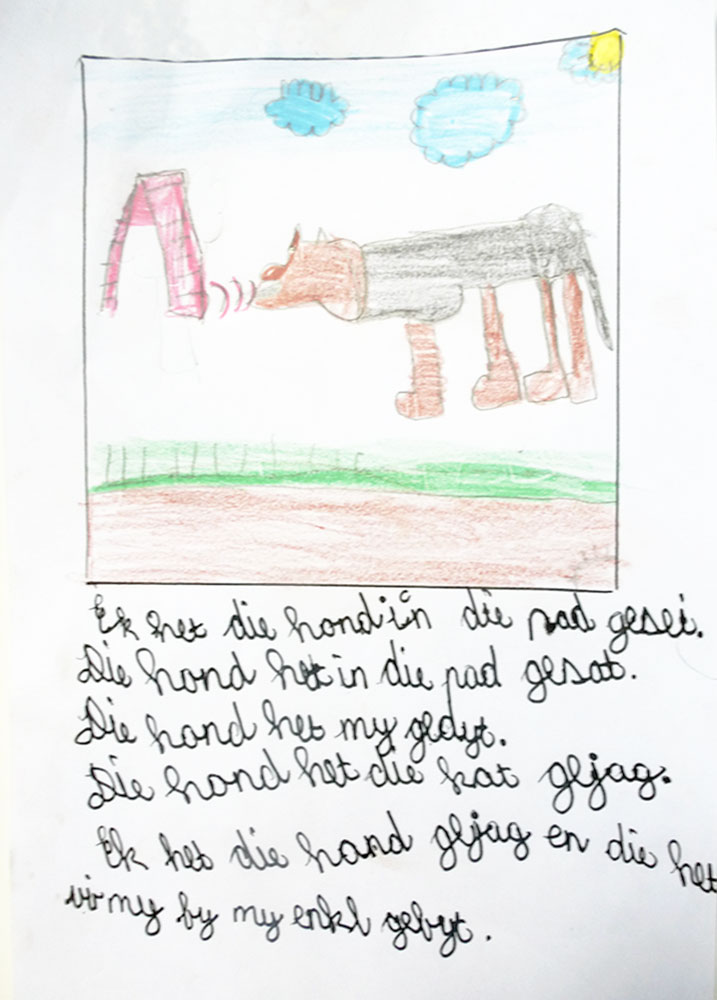 Ek het die hond in die pad gesei.
Die hond het in die pad gesat.
Die hond het my gedyt.
Die hond het die kat gejag.
Ek het die hond gejag en die het
vir my by my enkl gebyt.